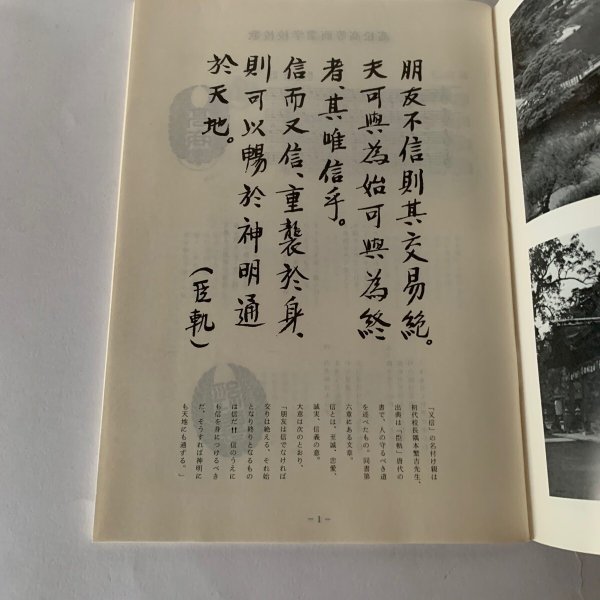 朋友不信則其交易絶。
夫可與為始可與為終
者、其唯信乎。
信而又信、重襲於身、
則可以暢於神明通
於天地。
（臣軌）
「又信」の名付け親は
初代校長隈本繁吉先生、
出典は「臣軌」唐代の
書で、人の守るべき道
を述べたもの。同書第
六章にある文章。
信とは、至誠、忠愛、
誠実、信義の意。
大意は次のとおり、
「朋友は信でなければ
交りは絶える、それ始
となり終りとなるもの
は信だ!! 信のうえに
も信を身につけるべき
だ、そうすれば神明に
も天地にも通ずる。」
－1－